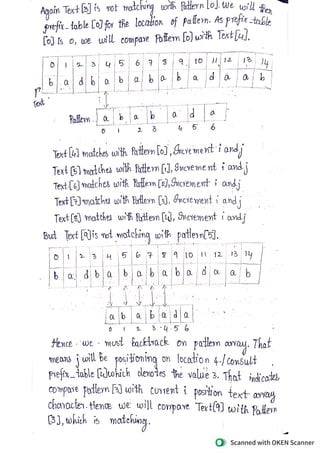 Again Text[3] is not matching with Pattern [0]. We will then
prefix_table [0] for the location of pattern. As prefix_table
[0] is 0, we will compare Pattern [0] with Text[4].
0 1 2 3 4 5 6 7 8 9 10 11 12 13 14
b a d b a b a b a b a d a a b
Text
Pattern a b a b a d a
0 1 2 3 4 5 6
Text [4] matches with Pattern [0], Increment i and j
Text [5] matches with Pattern [1], Increment i and j
Text [6] matches with Pattern [2], Increment i and j
Text [7] matches with Pattern [3], Increment i and j
Text [8] matches with Pattern [4], Increment i and j
But Text [9] is not matching with pattern[5].
0 1 2 3 4 5 6 7 8 9 10 11 12 13 14
b a d b a b a b a b a d a a b
a b a b a d a
0 1 2 3 4 5 6
Hence we must backtrack on pattern array. That
means j will be positioning on location 4. / consult
prefix_table [4] which denotes the value 3. That indicates
compare pattern [3] with current i position text array
character. Hence we will compare Text[9] with Pattern
[3], which is matching.
Scanned with OKEN Scanner